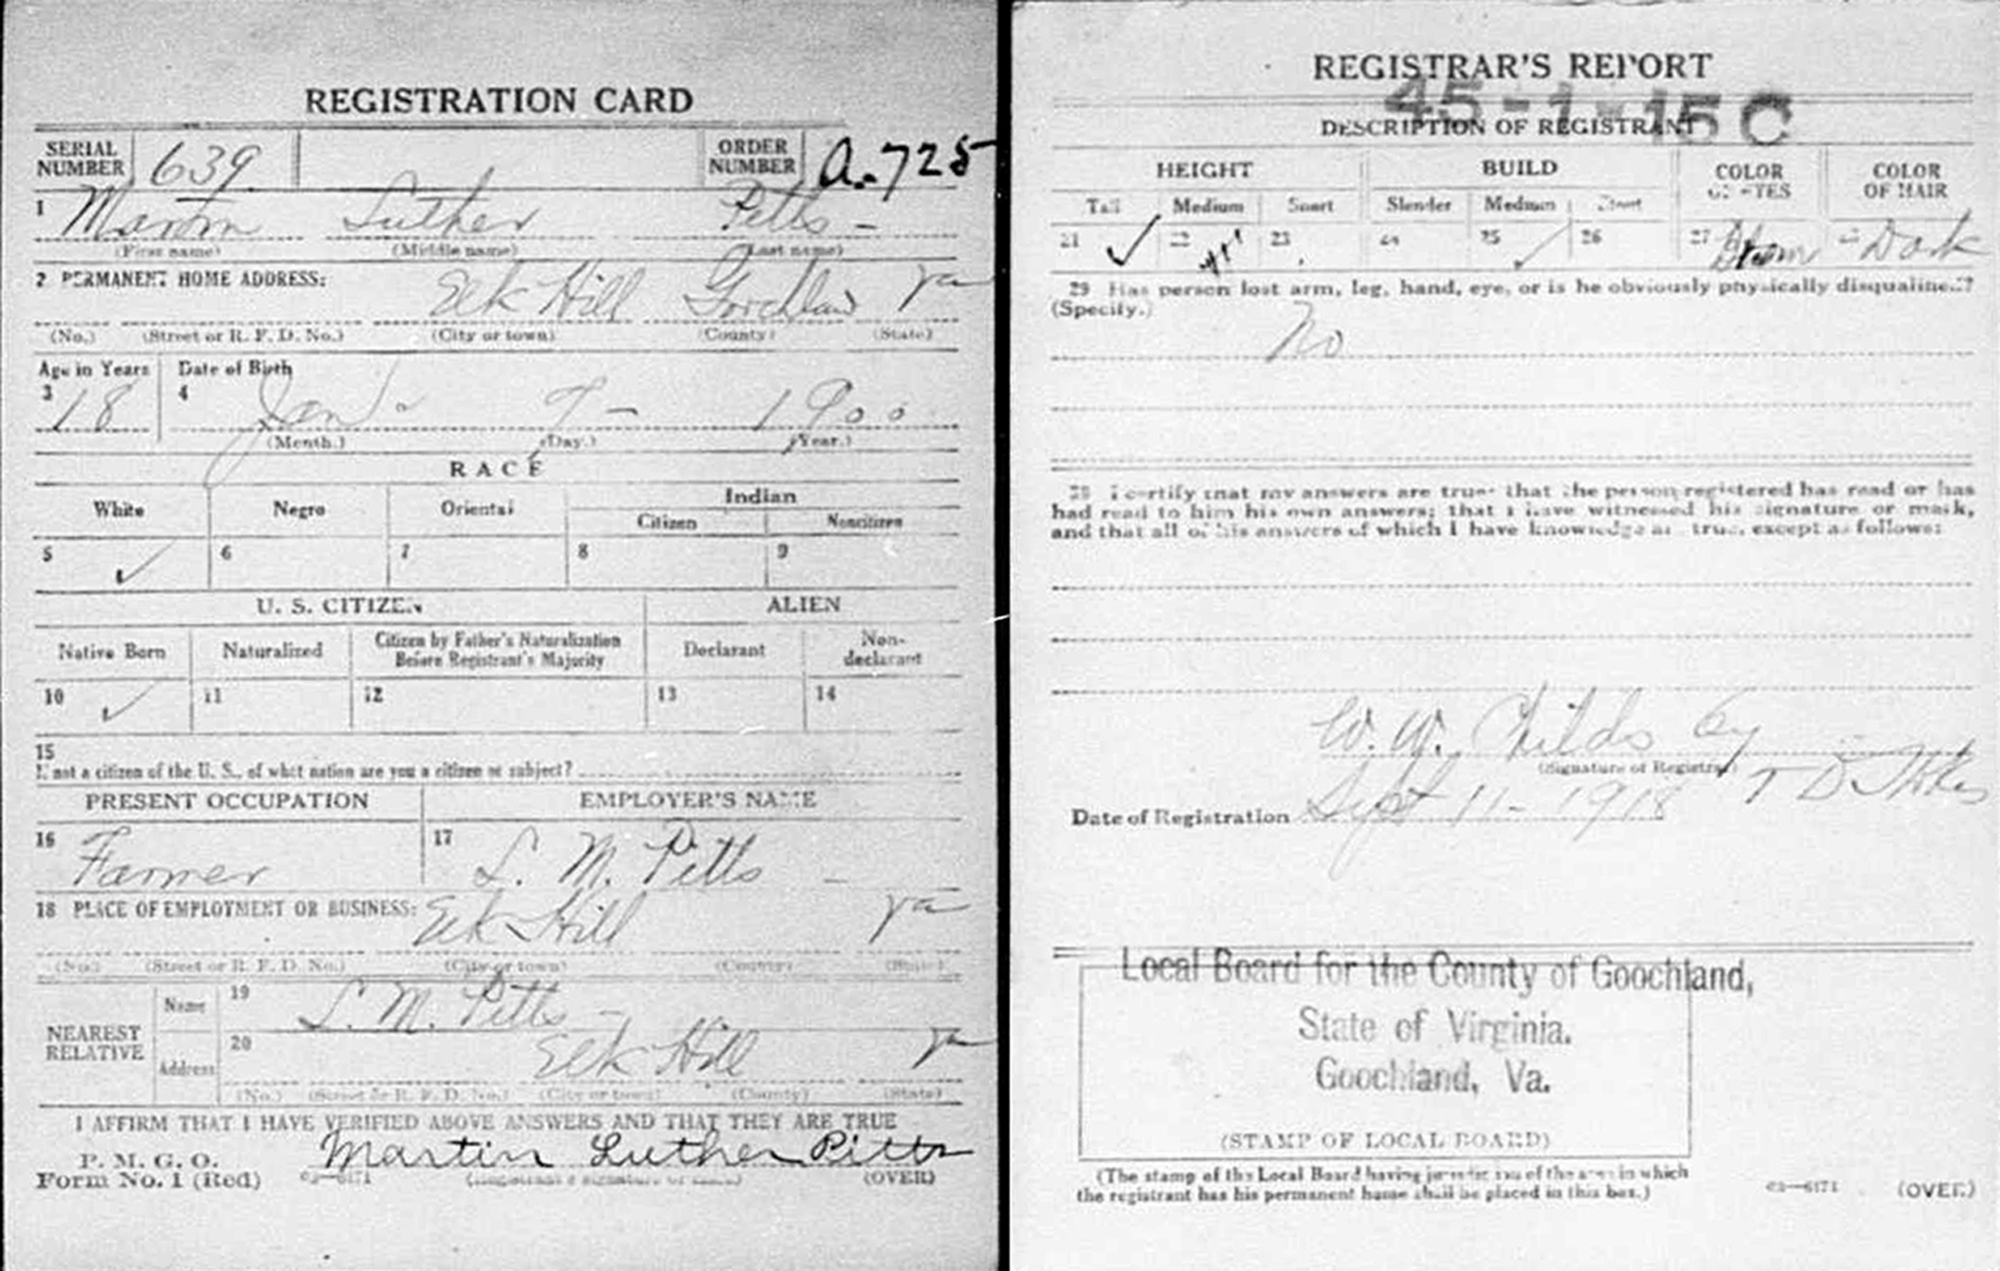 REGISTRATION CARD
SERIAL NUMBER 639. ORDER NUMBER A-725
1 Martin Luther Pitts -
(First name) (Middle name) (Last name)
2 PERMANENT HOME ADDRESS: Elk Hill Goochland Va
(No.) (Street or R. F. D. No.) (City or town) (County) (State)
Age in Years Date of Birth
3 18 4 Jan 9 - 1900
(Month.) (Day.) (Year.)
RACE
White Negro Oriental Indian
Citizen Noncitizen
5 ✓ 6 7 8 9
U. S. CITIZEN ALIEN
Native Born Naturalized Citizen by Father's Naturalization Before Registrant's Majority Declarant Non-declarant
10 ✓ 11 12 13 14
15
If not a citizen of the U. S., of what nation are you a citizen or subject?
PRESENT OCCUPATION EMPLOYER'S NAME
16 Farmer 17 L. M. Pitts -
18 PLACE OF EMPLOYMENT OR BUSINESS: Elk Hill Va
(No.) (Street or R. F. D. No.) (City or town) (County) (State)
NEAREST RELATIVE Name 19 L. M. Pitts -
Address 20 Elk Hill Va
(No.) (Street or R. F. D. No.) (City or town) (County) (State)
I AFFIRM THAT I HAVE VERIFIED ABOVE ANSWERS AND THAT THEY ARE TRUE
P. M. G. O.
Form No. 1 (Red) 03—6171 Martin Luther Pitts (OVER)
(Registrant's signature or mark)
REGISTRAR'S REPORT
45-1-15 C
DESCRIPTION OF REGISTRANT
HEIGHT BUILD COLOR OF EYES COLOR OF HAIR
Tall Medium Short Slender Medium Stout
21 ✓ 22 23 24 25 ✓ 26 27 28 Dark
29 Has person lost arm, leg, hand, eye, or is he obviously physically disqualified?
(Specify.)
No
30 I certify that my answers are true; that the person registered has read or has
had read to him his own answers; that I have witnessed his signature or mark,
and that all of his answers of which I have knowledge are true, except as follows:
W. W. Childs by
(Signature of Registrar) T D Stokes
Date of Registration Sept 11 - 1918
Local Board for the County of Goochland,
State of Virginia.
Goochland, Va.
(STAMP OF LOCAL BOARD)
(The stamp of the Local Board having jurisdiction of the area in which
the registrant has his permanent home shall be placed in this box.)
03—6171 (OVER)